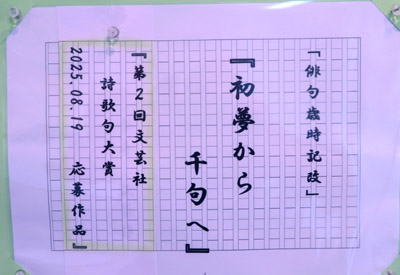 「俳句歳時記改」
『初夢から
千句へ』
『第2回文芸社
詩歌句大賞
2025.08.19 応募作品』